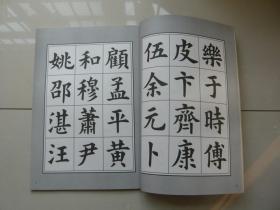 樂于時傅
皮卞齊康
伍余元卜
顧孟平黃
和穆蕭尹
姚邵湛汪